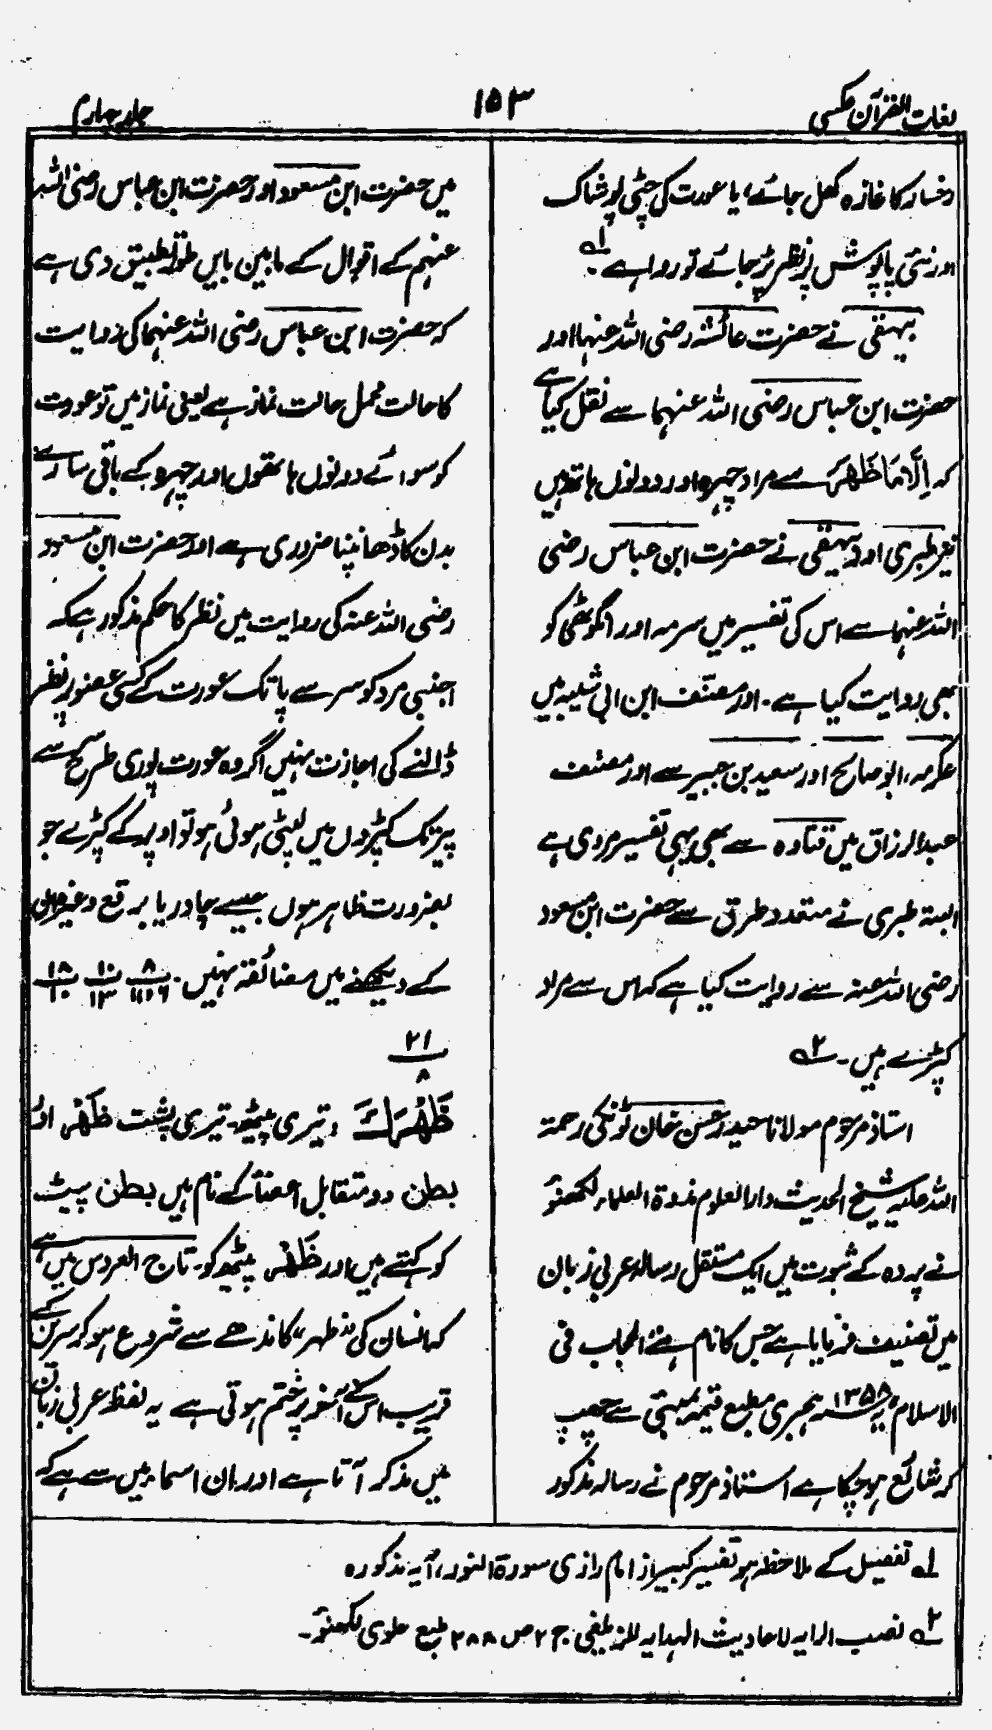 لغات القرآن عکسی
۱۵۳
جلد چہارم
رخسار کا غازہ کھل جائے، یا عورت کی چٹی پوشاک
اور نئی پاپوش پر نظر پڑ جائے تو روا ہے۔ ؎۱
بیہقی نے حضرت عائشہ رضی اللہ عنہا اور
حضرت ابن عباس رضی اللہ عنہما سے نقل کیا ہے
کہ اِلَّا مَا ظَهَرَ سے مراد چہرہ اور دونوں ہاتھ ہیں
نیز طبری اور بیہقی نے حضرت ابن عباس رضی
اللہ عنہما سے اس کی تفسیر میں سرمہ اور انگوٹھی کو
بھی روایت کیا ہے۔ اور مصنف ابن ابی شیبہ میں
عکرمہ، ابو صالح اور سعید بن جبیر سے اور مصنف
عبدالرزاق میں قتادہ سے بھی یہی تفسیر مروی ہے
البتہ طبری نے متعدد طرق سے حضرت ابن مسعود
رضی اللہ عنہ سے روایت کیا ہے کہ اس سے مراد
کپڑے ہیں۔ ؎۲
استاذ مرحوم مولانا حیدر حسن خان ٹونکی رحمۃ
اللہ علیہ شیخ الحدیث دارالعلوم ندوۃ العلماء لکھنؤ
نے پردہ کے ثبوت میں ایک مستقل رسالہ عربی زبان
میں تصنیف فرمایا ہے جس کا نام ہے الحجاب فی
الاسلام یہ ۱۳۵۸ ہجری مطبع قیمہ بمبئی سے چھپ
کر شائع ہو چکا ہے استاذ مرحوم نے رسالہ مذکور
میں حضرت ابن مسعود اور حضرت ابن عباس رضی اللہ
عنہم کے اقوال کے مابین بایں طور تطبیق دی ہے
کہ حضرت ابن عباس رضی اللہ عنہما کی روایت
کا حالت محمل حالت نماز ہے یعنی نماز میں تو عورت
کو سوائے دونوں ہاتھوں اور چہرہ کے باقی سارے
بدن کا ڈھانپنا ضروری ہے اور حضرت ابن مسعود
رضی اللہ عنہ کی روایت میں نظر کا حکم مذکور ہے کہ
اجنبی مرد کو سر سے پا تک عورت کے کسی عضو پر نظر
ڈالنے کی اجازت نہیں اگر وہ عورت پوری طرح سر سے
پیر تک کپڑوں میں لپٹی ہوئی ہو تو اوپر کے کپڑے جو
بضرورت ظاہر ہوں جیسے چادر یا برقع وغیرہ ان
کے دیکھنے میں مضائقہ نہیں۔ ۸/۱۱،۱۶ ۱۰/۱۳ ۱۸/۱۰
۲۱/۸
ظَهْرَكَ، تیری پیٹھ۔ تیری پشت ظَهْر اور
بطن دو متقابل اعضاء کے نام ہیں بطن پیٹ
کو کہتے ہیں اور ظَهْر پیٹھ کو۔ تاج العروس میں ہے
کہ انسان کی ظہر، کاندھے سے شروع ہو کر سرین کے
قریب اس کے آخر پر ختم ہوتی ہے یہ لفظ عربی زبان
میں مذکر آتا ہے اور ان اسماء میں سے ہے کہ
؎۱ تفصیل کے ملاحظہ ہو تفسیر کبیر از امام رازی سورۃ النور، آیہ مذکورہ
؎۲ نصب الرایہ لاحادیث الہدایہ للزیلعی ج ۲ ص ۲۸۸ طبع علوی لکھنؤ۔